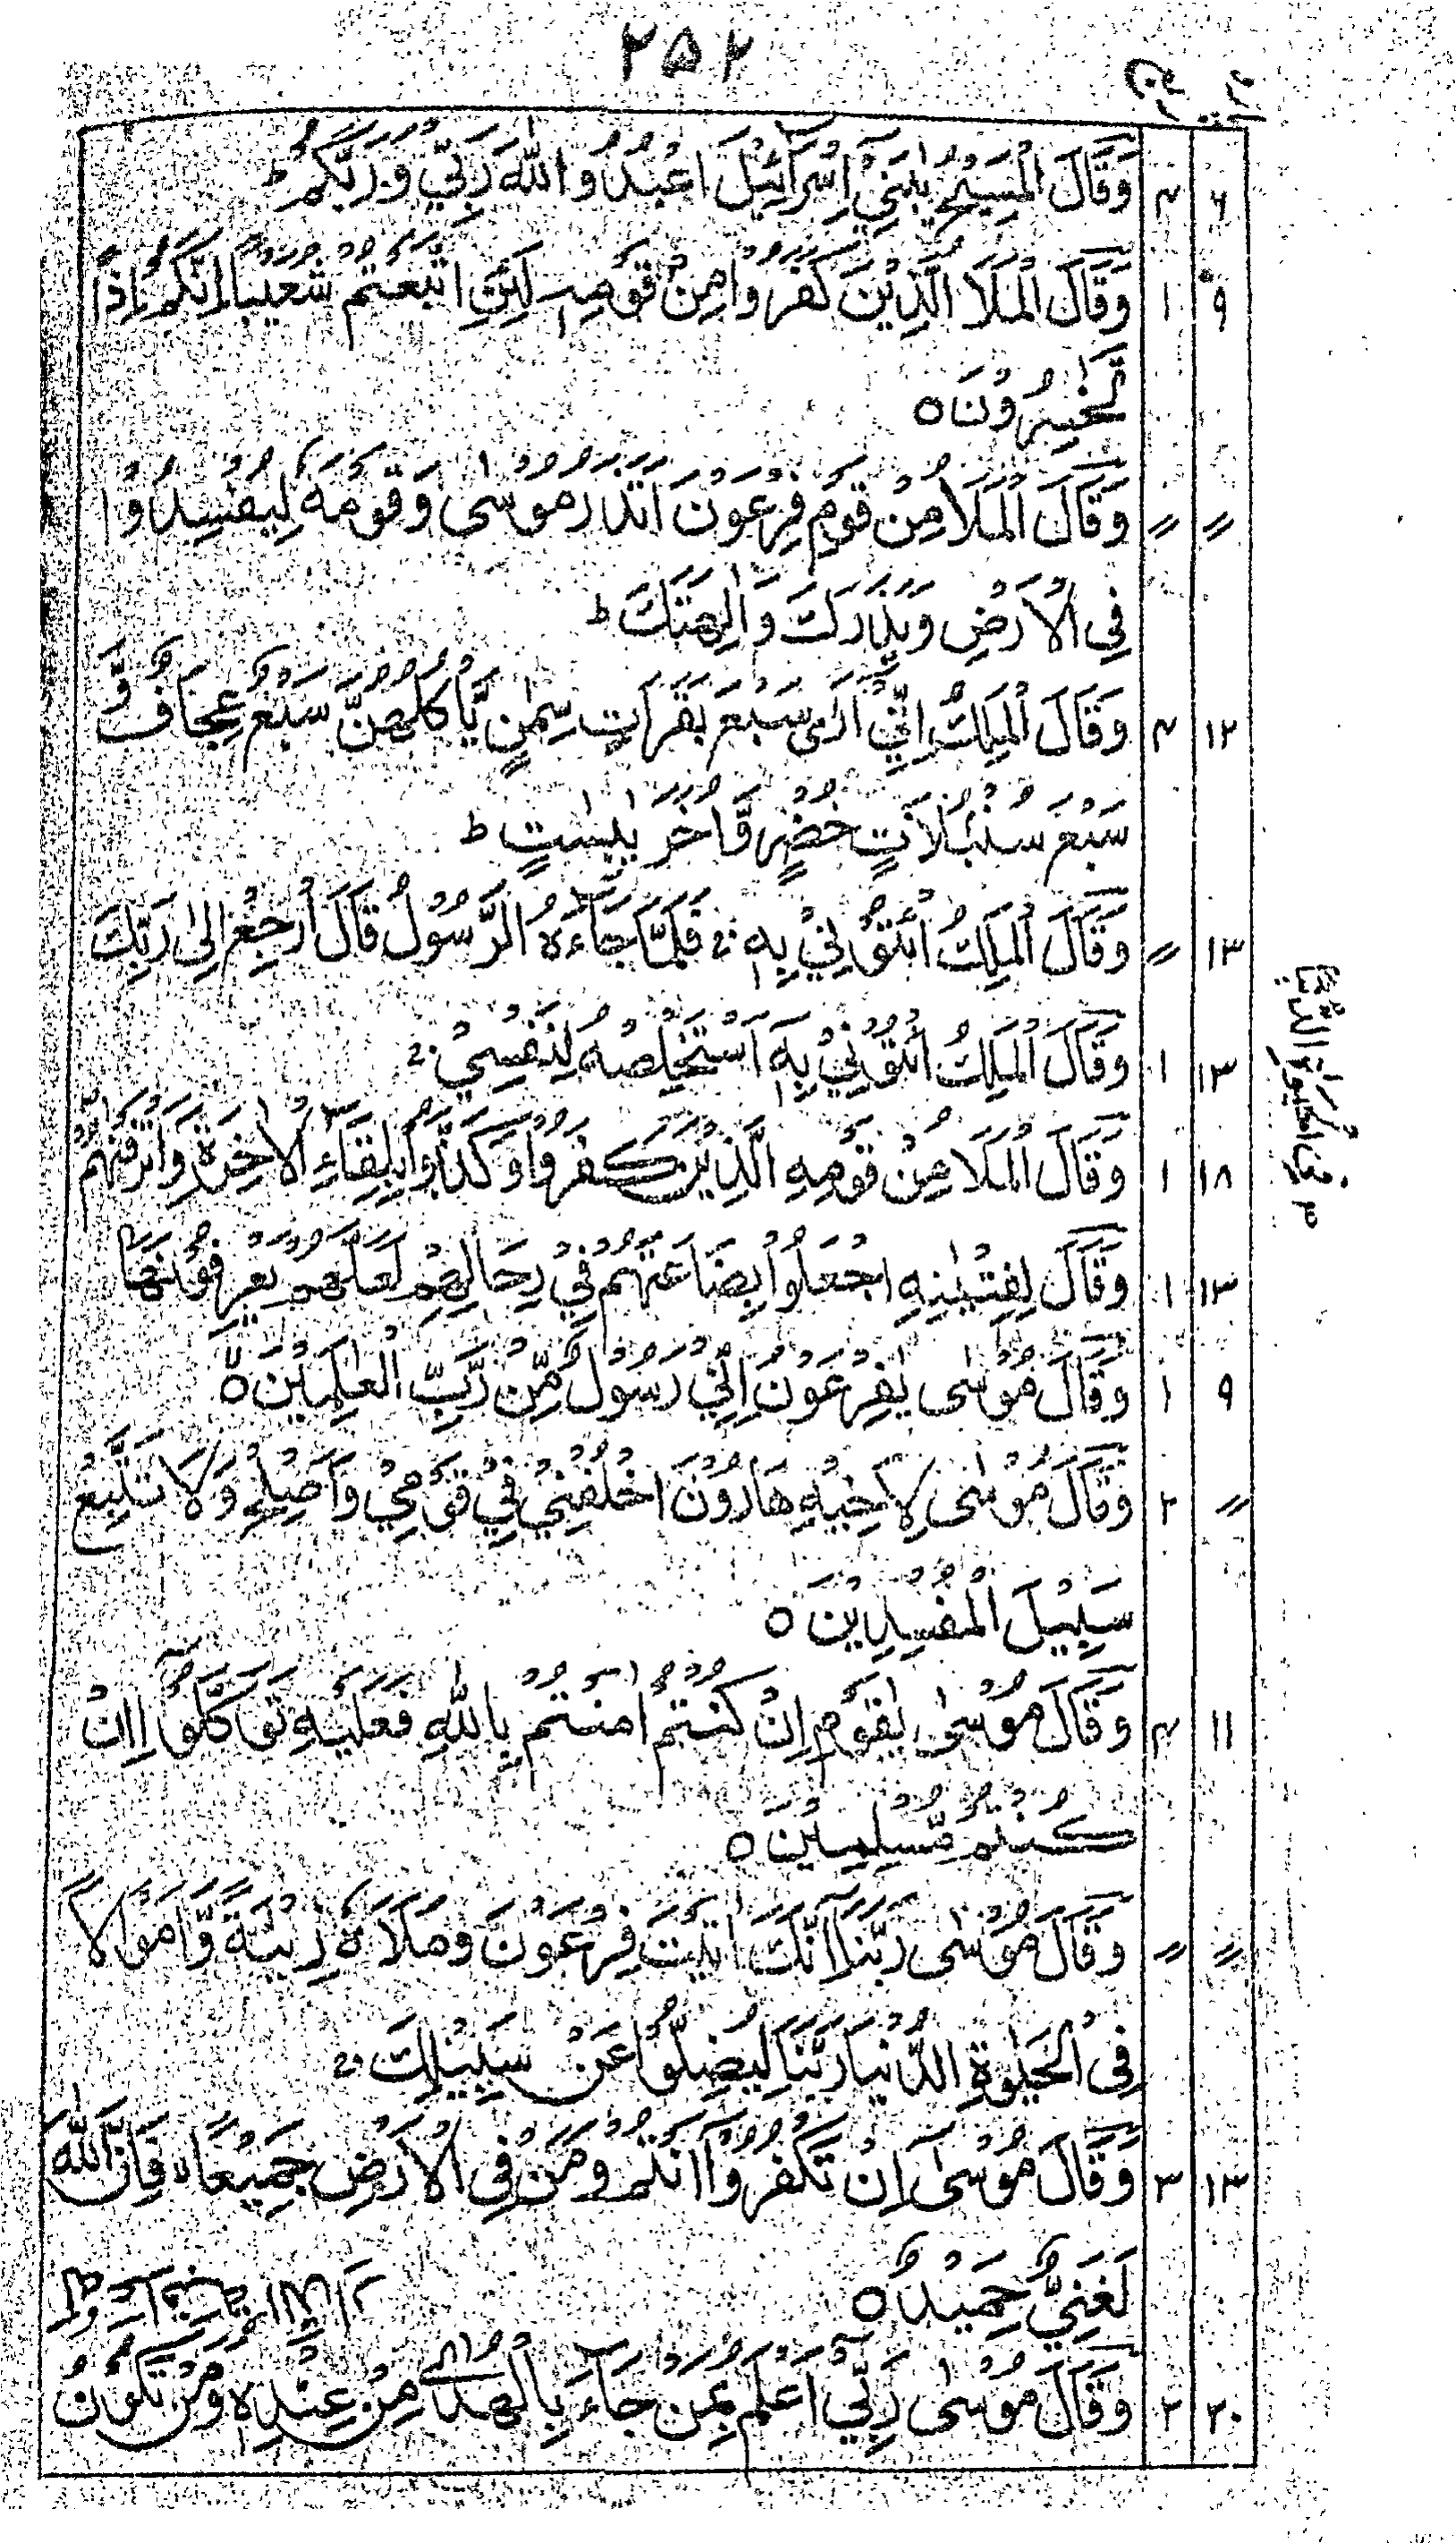 ۲۵۲
۶ ۴ وَقَالَ الْمَسِيْحُ يٰبَنِيْٓ اِسْرَآئِيْلَ اعْبُدُوا اللّٰهَ رَبِّيْ وَرَبَّكُمْ ط
۹ ۱ وَقَالَ الْمَلَاُ الَّذِيْنَ كَفَرُوْا مِنْ قَوْمِهٖ لَئِنِ اتَّبَعْتُمْ شُعَيْبًا اِنَّكُمْ اِذًا
لَّخٰسِرُوْنَ ہ
〃 〃 وَقَالَ الْمَلَاُ مِنْ قَوْمِ فِرْعَوْنَ اَتَذَرُ مُوْسٰى وَقَوْمَهٗ لِيُفْسِدُوْا
فِى الْاَرْضِ وَيَذَرَكَ وَاٰلِهَتَكَ ط
۱۲ ۴ وَقَالَ الْمَلِكُ اِنِّيْٓ اَرٰى سَبْعَ بَقَرَاتٍ سِمَانٍ يَّاْكُلُهُنَّ سَبْعٌ عِجَافٌ وَّ
سَبْعَ سُنْۢبُلَاتٍ خُضْرٍ وَّاُخَرَ يٰبِسٰتٍ ط
۱۳ 〃 وَقَالَ الْمَلِكُ ائْتُوْنِيْ بِهٖ ج فَلَمَّا جَآءَهُ الرَّسُوْلُ قَالَ ارْجِعْ اِلٰى رَبِّكَ
۱۳ ۱ وَقَالَ الْمَلِكُ ائْتُوْنِيْ بِهٖٓ اَسْتَخْلِصْهُ لِنَفْسِيْ ج
۱۸ ۱ وَقَالَ الْمَلَاُ مِنْ قَوْمِهِ الَّذِيْنَ كَفَرُوْا وَكَذَّبُوْا بِلِقَآءِ الْاٰخِرَةِ وَاَتْرَفْنٰهُمْ
۳ فِي الْحَيٰوةِ الدُّنْيَا
۱۳ ۱ وَقَالَ لِفِتْيٰنِهِ اجْعَلُوْا بِضَاعَتَهُمْ فِيْ رِحَالِهِمْ لَعَلَّهُمْ يَعْرِفُوْنَهَآ
۹ ۱ وَقَالَ مُوْسٰى يٰفِرْعَوْنُ اِنِّيْ رَسُوْلٌ مِّنْ رَّبِّ الْعٰلَمِيْنَ ہ
〃 ۲ وَقَالَ مُوْسٰى لِاَخِيْهِ هَارُوْنَ اخْلُفْنِيْ فِيْ قَوْمِيْ وَاَصْلِحْ وَلَا تَتَّبِعْ
سَبِيْلَ الْمُفْسِدِيْنَ ہ
۱۱ ۴ وَقَالَ مُوْسٰى يٰقَوْمِ اِنْ كُنْتُمْ اٰمَنْتُمْ بِاللّٰهِ فَعَلَيْهِ تَوَكَّلُوْٓا اِنْ
كُنْتُمْ مُّسْلِمِيْنَ ہ
〃 〃 وَقَالَ مُوْسٰى رَبَّنَآ اِنَّكَ اٰتَيْتَ فِرْعَوْنَ وَمَلَاَهٗ زِيْنَةً وَّاَمْوَالًا
فِى الْحَيٰوةِ الدُّنْيَا رَبَّنَا لِيُضِلُّوْا عَنْ سَبِيْلِكَ ج
۱۳ ۳ وَقَالَ مُوْسٰٓى اِنْ تَكْفُرُوْٓا اَنْتُمْ وَمَنْ فِى الْاَرْضِ جَمِيْعًا فَاِنَّ اللّٰهَ
لَغَنِيٌّ حَمِيْدٌ ہ
۲۰ ۲ وَقَالَ مُوْسٰى رَبِّيْٓ اَعْلَمُ بِمَنْ جَآءَ بِالْهُدٰى مِنْ عِنْدِهٖ وَمَنْ تَكُوْنُ
لَهٗ عَاقِبَةُ الدَّارِ ط